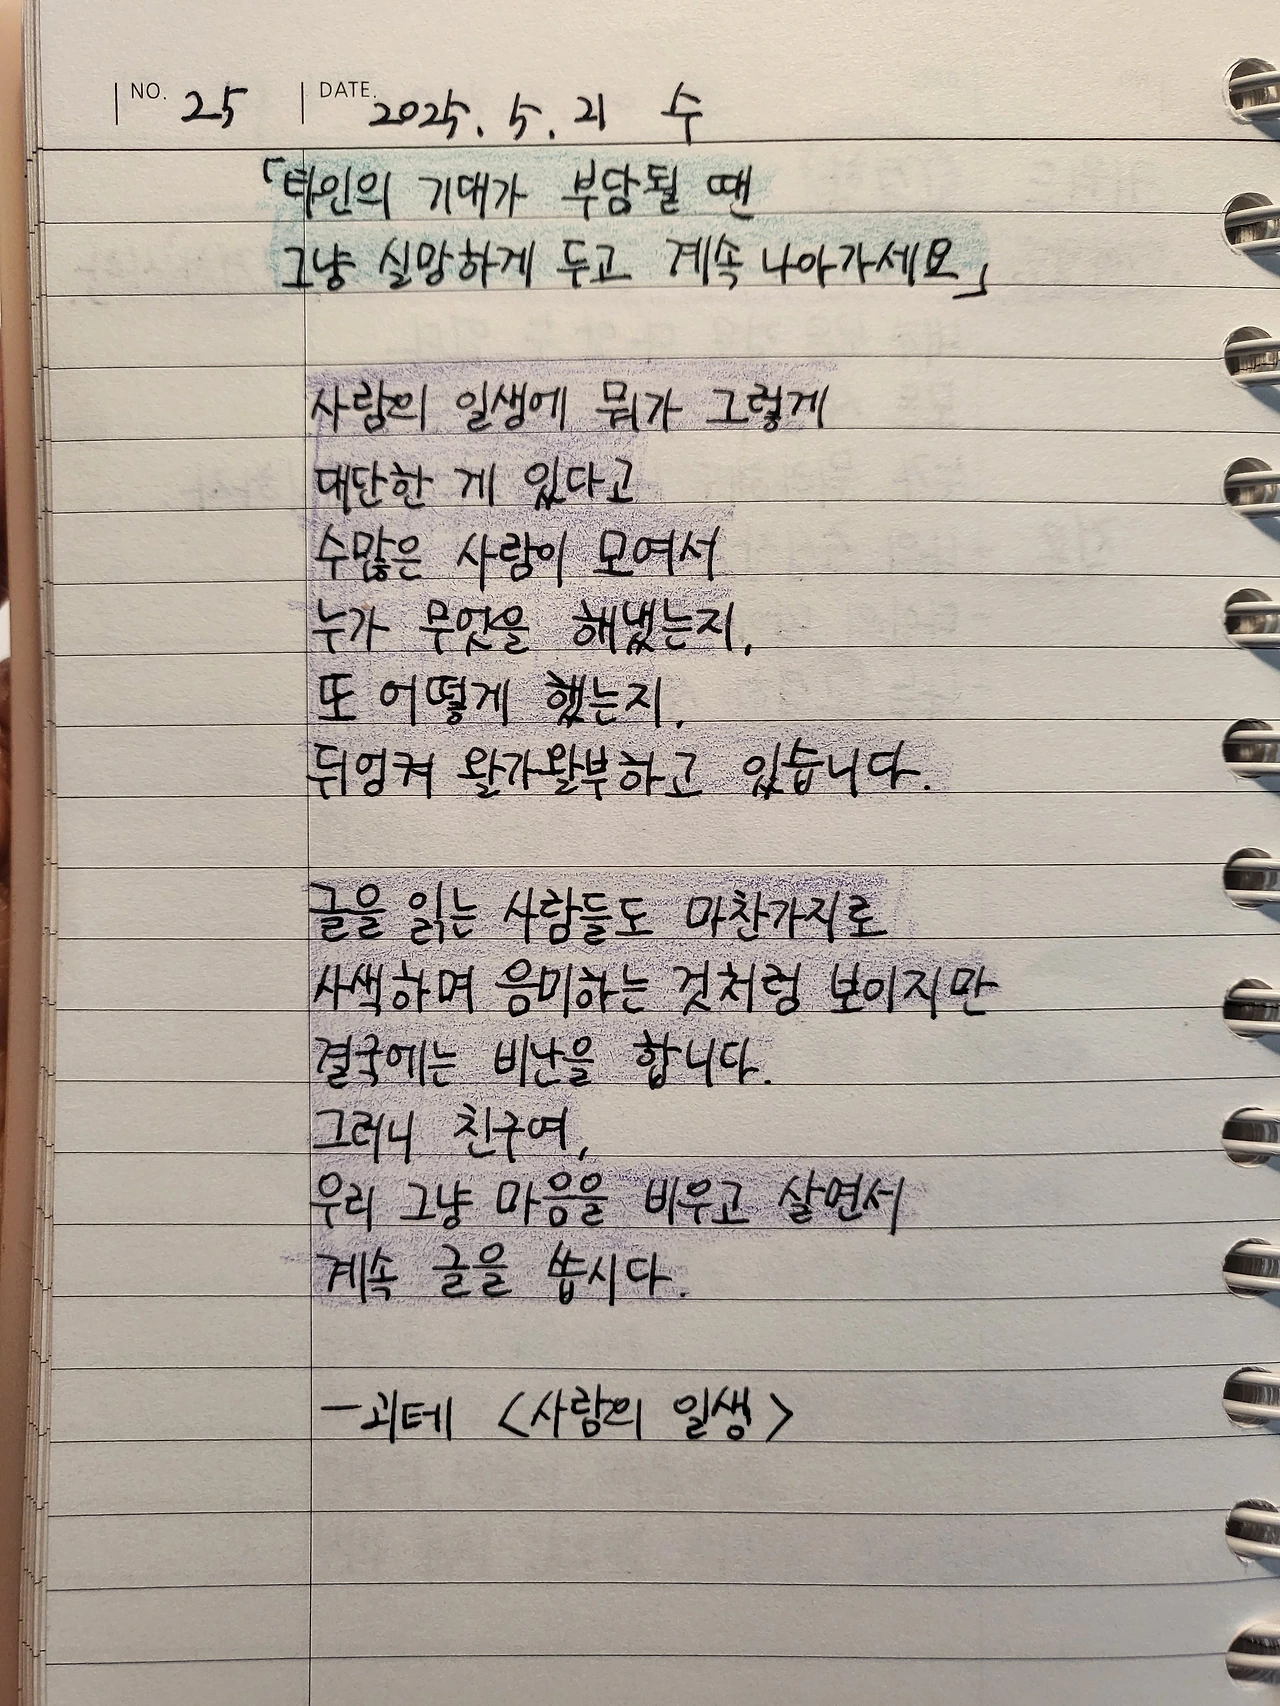 NO. 25 DATE. 2025. 5. 21 수
「타인의 기대가 부담될 땐
그냥 실망하게 두고 계속 나아가세요」
사람의 일생에 뭐가 그렇게
대단한 게 있다고
수많은 사람이 모여서
누가 무엇을 해냈는지,
또 어떻게 했는지,
뒤엉켜 왈가왈부하고 있습니다.
글을 읽는 사람들도 마찬가지로
사색하며 음미하는 것처럼 보이지만
결국에는 비난을 합니다.
그러니 친구여,
우리 그냥 마음을 비우고 살면서
계속 글을 씁시다.
- 괴테 <사람의 일생>